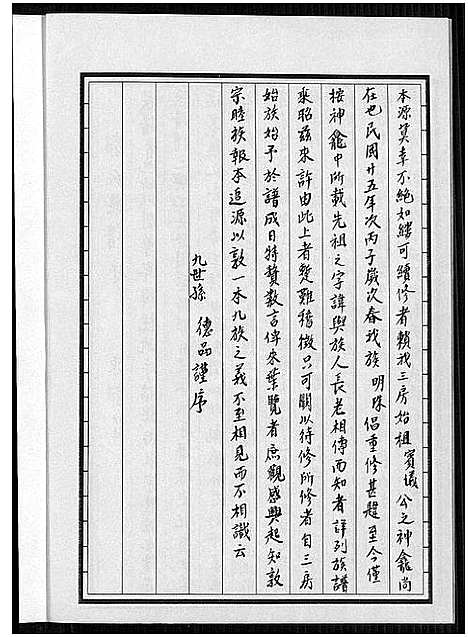 本源莫幸不絕如縷可續修者賴我三房始祖賓儀公之神龕尚
在也民國廿五年次丙子歲次春我族明珠倡重修甚題至今僅
按神龕中所載先祖之字諱與族人長老相傳而知者詳列族譜
乘昭茲來許由此上者蹔難稽徵只可關以待修所修者自三房
始族始予於譜成日特贅数言俾來葉覽者庶觀感興起知敦
宗睦族報本追源以敦一本九族之義不至相見而不相識云
九世孫 德品謹序